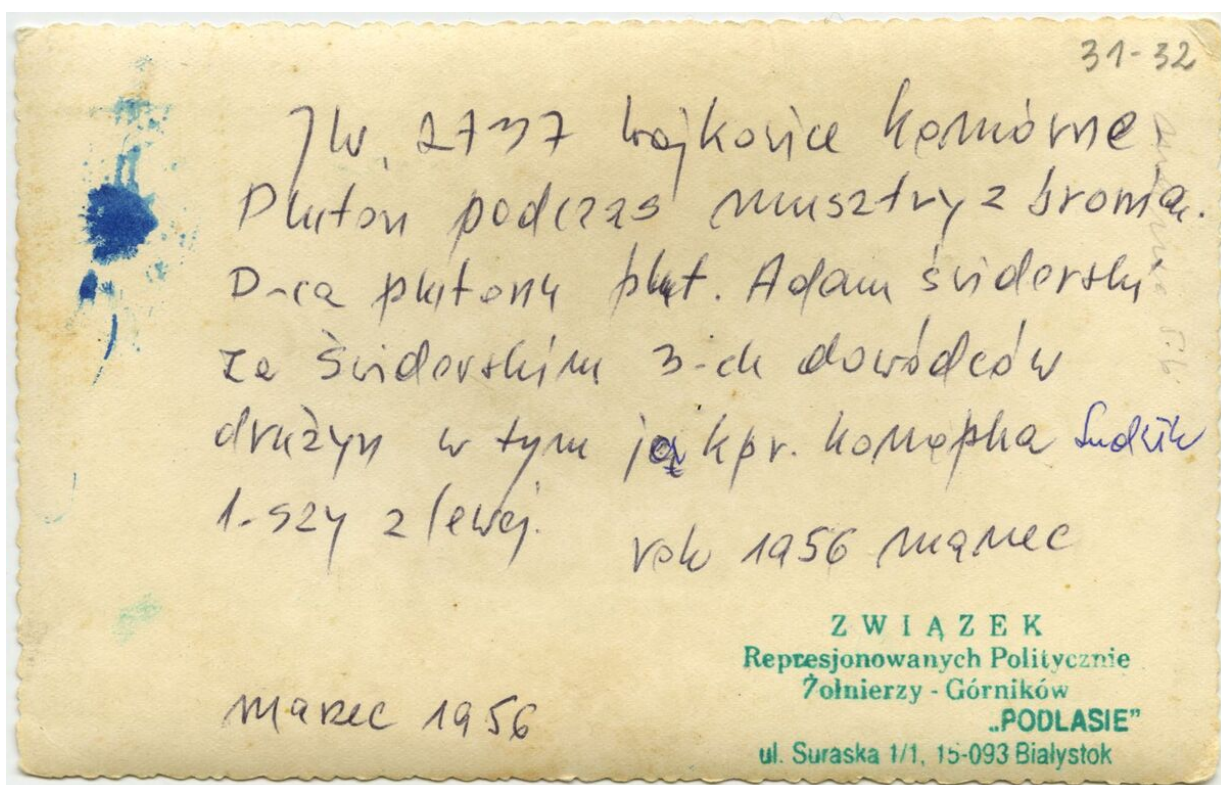 31-32
JW. 2737 Wojkowice Komórne
Pluton podczas musztry z bronią.
D-ca plutonu plut. Adam Świderski
za Świderskim 3-ch dowódców
drużyn w tym ja kpr. Konopka Ludwik
1-szy z lewej.
rok 1956 marzec
marzec 1956
ZWIĄZEK
Represjonowanych Politycznie
Żołnierzy - Górników
„PODLASIE"
ul. Suraska 1/1, 15-093 Białystok